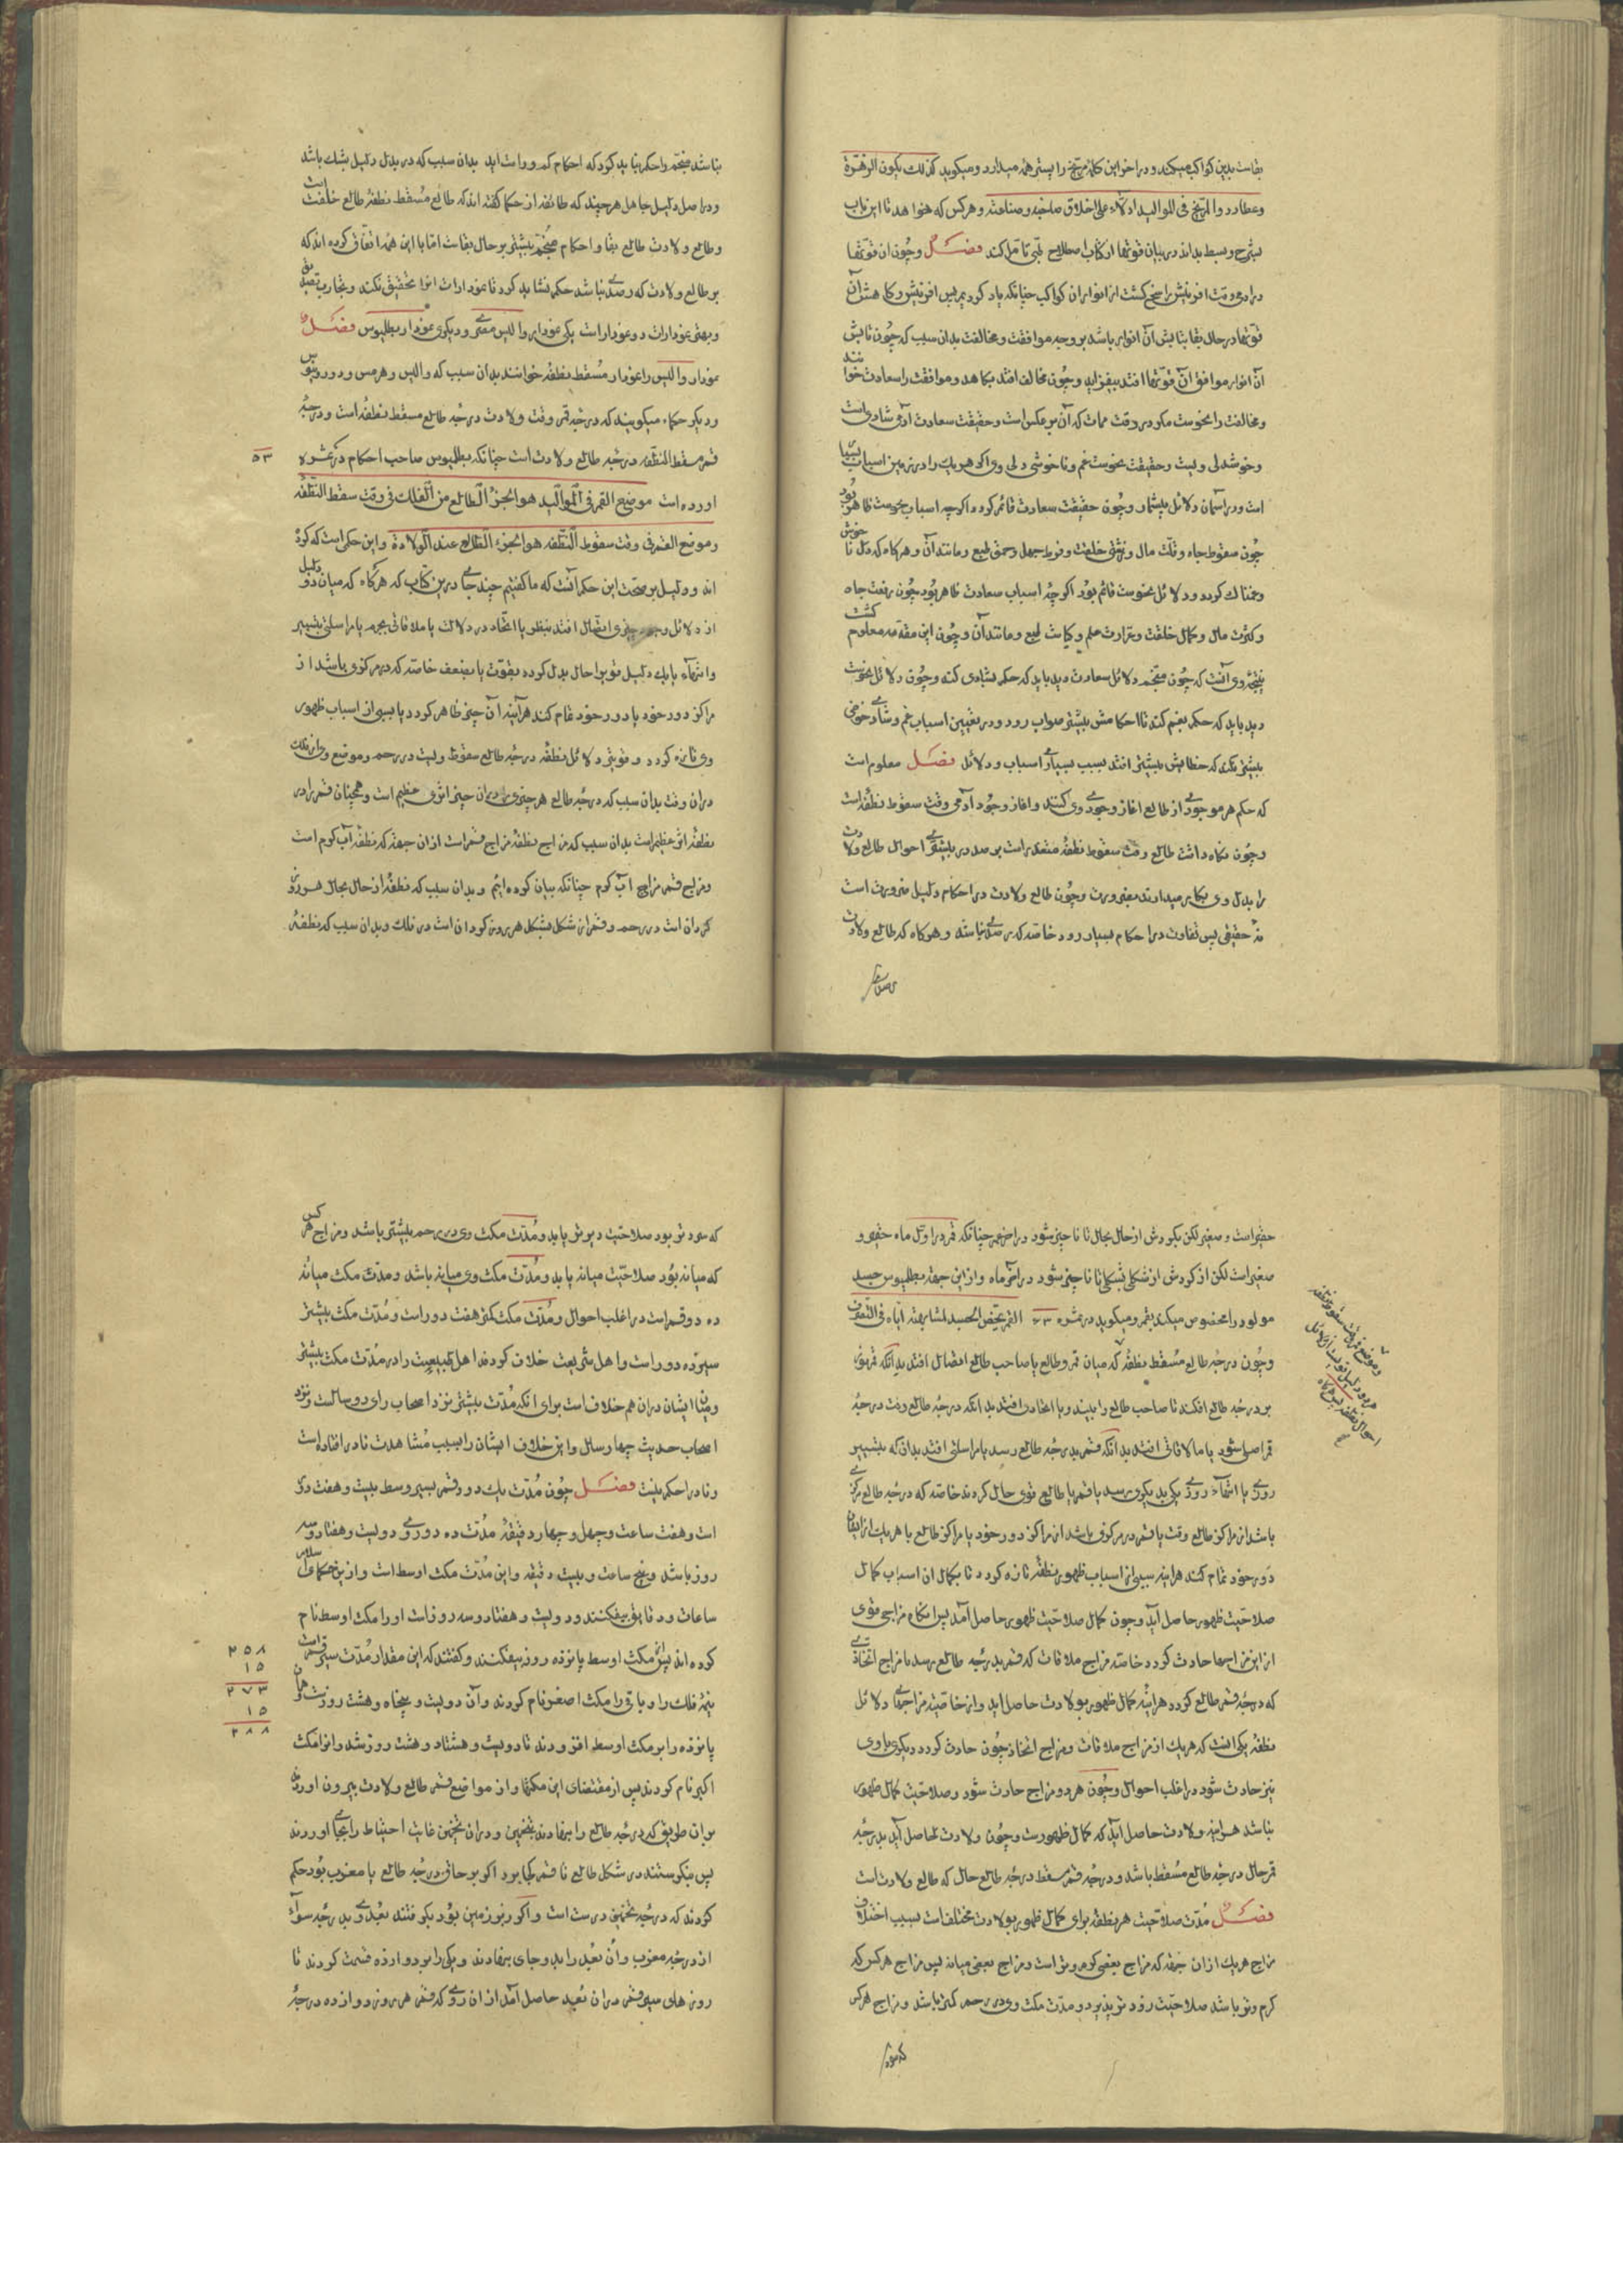 بقاست بدین کواکب میکند و در اخر این کلمه مریخ را پستر همه میدارد و میکوید کذلك یکون الزهرة
وعطارد والمریخ فی الموالید ادلاء علی اخلاق صاحبه وصناعته و هرکس که خواهد تا این باب
بشرح وبسط بداند در بیان قوتها از کتاب اصطلاح طبی تامل کند فصل و چون ان قوتها
در ادمی وقت افرینش راسخ کشت از انوار ان کواکب چنانکه یاد کردیم پس افزایش و کاهش آن
قوتها در حال بقا بتابش آن انوار باشد بر وجه موافقت و مخالفت بدان سبب که چون تابش
آن انوار موافق آن قوتها افتد بیفزاید و چون مخالف افتد بکاهد و موافقت را سعادت خوانند
و مخالفت را نحوست مکر در وقت ممات که آن بر عکس است و حقیقت سعادت آدمی شادی است
و خوشدلی ویست و حقیقت نحوست غم و ناخوشی دلی وی اکر هر یك را در زمین اسباب بسیار
است و در آسمان دلائل بیشمار و چون حقیقت سعادت قائم کردد اکرچه اسباب نحوست ظاهر بود
چون سقوط جاه و قلت مال و زشتی خلقت و فرط جهل و حمق طبع و مانند آن و هر کاه که دل ناخوش
و غمناك کردد و دلائل نحوست قائم بود اکرچه اسباب سعادت ظاهر بود چون رفعت جاه
و کثرت مال و کمال خلقت و غزارت علم و کیاست طبع و مانند آن و چون این مقدمه معلوم کشت
نتیجه وی آنست که چون منجم دلائل سعادت دید باید که حکم بشادی کند و چون دلائل نحوست
دید باید که حکم بغم کند تا احکامش بیشتر صواب رود و در تعیین اسباب غم و شادی خوض
بیشتر نکند که خطایش بیشتر افتد بسبب بسیاری اسباب و دلائل فصل معلوم است
که حکم هر موجودی از طالع اغاز وجودی وی کنند و اغاز وجود آدمی وقت سقوط نطفه است
و چون نکاه داشت طالع وقت سقوط نطفه متعذر است بر صدد در بیشتری احوال طالع ولادت
را بدل وی بکار میدارند بضرورت و چون طالع ولادت در احکام دلیل ضرورت است
نه حقیقی پس تفاوت در احکام بسیار رود خاصه که رصدی نباشد و هرکاه که طالع ولادت
نباشد منجم را حکم نباید کرد که احکام کم و راست آید بدان سبب که در بدل دلیل بشك باشد
و در اصل دلیل جاهل هرچند که طائفه از حکما کفته اند که طالع مسقط نطفه طالع خلقت است
و طالع ولادت طالع بقا و احکام منجم بیشتر بر حال بقاست اما با این همه اتفاق کرده اند که
بر طالع ولادت که رصدی نباشد حکم نشاید کرد تا بنمودارات انرا تحقیق نکند و بتجارب تصدیق
و بهتر نمودارات دو نمودار است یکی نمودار والیس مصری و دیکری نمودار بطلیوس فصل
نمودار والیس را نمودار مسقط نطفه خوانند بدان سبب که والیس و هرمس و دورتیوس
و دیکر حکماء میکویند که درجه قمر وقت ولادت درجه طالع مسقط نطفه است و درجه
قمر مسقط النطفه درجه طالع ولادت است چنانکه بطلیوس صاحب احکام در ثمره ٥٣
اورده است موضع القمر فی الموالید هو الجزء الطالع من الفلك فی وقت سقط النطفه
وموضع القمر فی وقت سقوط النطفه هو الجزء الطالع عند الولادة و این حکمی است که کرده
اند و دلیل بر صحت این حکم آنست که ما کفتیم چند جای درین کتاب که هرکاه که میان دو دلیل
از دلائل وجود چیزی اتصال افتد بنظر یا اتحاد در دلالت یا ملاقاتی بجرم یا مراسلتی بتسییر
و انتهاء یا یك دلیل قوی را حال بدل کردد بقوت یا بضعف خاصه که در مرکزی باشد از
مراکز دور خود یا دور خود تمام کند هرآینه آن چیز ظاهر کردد یا سببی از اسباب ظهور
وی تازه کردد و قویتر دلائل نطفه درجه طالع سقوط ویست در رحم و موضع وی از فلك
دران وقت بدان سبب که درجه طالع هر چیزی را در ان چیز اثری عظیم است و همچنان قمر را در
نطفه اثر عظیم است بدان سبب که مزاج نطفه مزاج قمر است از ان جهت که نطفه آب کرم است
و مزاج قمر مزاج آب کرم چنانکه بیان کرده ایم و بدان سبب که نطفه از حال بحال هر روز
کردان است در رحم و قمر از شکل بشکل هر روز کردان است در فلك و بدان سبب که نطفه
حقیر است و صغیر لکن بکردش از حال بحال تا ناچیز شود در اخر هم چنانکه قمر در اول ماه حقیر و
صغیر است لکن از کردش از شکلی بشکلی تا ناچیز شود در آخر ماه و از این جهت بطلیوس جسد
مولود را مخصوص میکند بقمر و میکوید در ثمره القمر یخص الجسد لمشابهته ایاه فی التصرف
و چون درجه طالع مسقط نطفه که میان قمر و طالع یا صاحب طالع اتصال افتد بدانکه قمر نور
بر درجه طالع افکند تا صاحب طالع را بیند و یا اتحادی افتد بدانکه درجه طالع وقت درجه
قمر اصل شود یا ملاقاتی افتد بدانکه قمر بدرجه طالع رسد یا مراسلتی افتد بدان که بتسییر
روزی یا انتهاء روزی یکی بدیکری رسد یا قمر یا طالع قوی حال کردند خاصه که درجه طالع مرکزی
باشد از مراکز طالع وقت یا قمر در مرکزی باشد از مراکز دور خود یا مراکز طالع یا هر یك از ایشان
دور خود تمام کنند هراینه سببی از اسباب ظهور نطفه تازه کردد تا بکمال ان اسباب کمال
صلاحیت ظهور حاصل آید و چون کمال صلاحیت ظهور حاصل آمد پس انکام مزاجی قوی
از این مزاجها حادث کردد خاصه مزاج ملاقات که قمر بدرجه طالع رسد یا مزاج اتحادی
که درجه قمر طالع کردد هراینه کمال ظهور بولادت حاصل اید و از خاصیت مزاجهای دلائل
نطفه یکی انست که هر یك از مزاج ملاقات و مزاج اتحاد چون حادث کردد دیکری با وی
نیز حادث شود در اغلب احوال و چون هر دو مزاج حادث شود و صلاحیت کمال ظهور
باشد هراینه ولادت حاصل آید که کمال ظهورست و چون ولادت حاصل آید بدرجه
قمر حال درجه طالع مسقط باشد و درجه قمر مسقط درجه طالع حال که طالع ولادت است
فصل مدت صلاحیت هر نطفه برای کمال ظهور بولادت مختلف است بسبب اختلاف
مزاج هر یك از ان جهت که مزاج بعضی کرم و تر است و مزاج بعضی میانه پس مزاج هر کس که
کرم و تر باشد صلاحیت زود تر پذیرد و مدت مکث وی در رحم کمتر باشد و مزاج هر کس
که سرد تر بود صلاحیت دیرتر یابد و مدت مکث وی در رحم بیشتر باشد و مزاج هر کس
که میانه بود صلاحیت میانه یابد و مدت مکث وی میانه باشد و مدت مکث میانه
ده دور قمر است در اغلب احوال و مدت مکث کمتر هفت دور است و مدت مکث بیشتر
سیزده دور است و اهل شریعت خلاف کردند اهل طبیعت را در مدت مکث بیشتر
و میان ایشان دران هم خلاف است برای انکه مدت بیشتر نزد اصحاب رای دو سالست و نزد
اصحاب حدیث چهار سال و این خلاف ایشان را بسبب مشاهدت نادر افتاده است
و نادر را حکم نیست فصل چون مدت یك دور قمر بسیر وسط بیست و هفت روز
است و هفت ساعت و چهل و چهار دقیقه مدت ده دوری دویست و هفتاد و سه
روز باشد و پنج ساعت و بیست دقیقه و این مدت مکث اوسط است و ازین حکمای اسلام
ساعات و دقایق بیفکنند و دویست و هفتاد و سه روز است او را مکث اوسط نام
کرده اند پس از مکث اوسط پانزده روز بیفکنند و کفتند که این مقدار مدت سیر قمر است
نیمه فلك را و باقی را مکث اصغر نام کردند و آن دویست و پنجاه و هشت روز است و همان
پانزده را بر مکث اوسط افزودند تا دویست و هشتاد و هشت روز شد و انرا مکث
اکبر نام کردند پس از مقتضای این مکثها و از مواضع قمر طالع ولادت بیرون اوردند
بران طریق که درجه طالع را بنهادند بتخمین و دران تخمین غایت احتیاط را بجای اوردند
پس بنکرستند در شکل طالع تا قمر کجا بود اکر بر حاق درجه طالع یا مغرب بود حکم
کردند که درجه تخمین درست است و اکر زبر زمین بود بکرفتند بعد وی بدرجه سواء
از درجه مغرب و آن بعد را بدو جای بنهادند و یکی را بر دوازده قسمت کردند تا
روزهای سیر قمر دران بعد حاصل آمد از ان روی که قمر هر روز دوازده درجه
٢٥٨
١٥
٢٧٣
١٥
٢٨٨